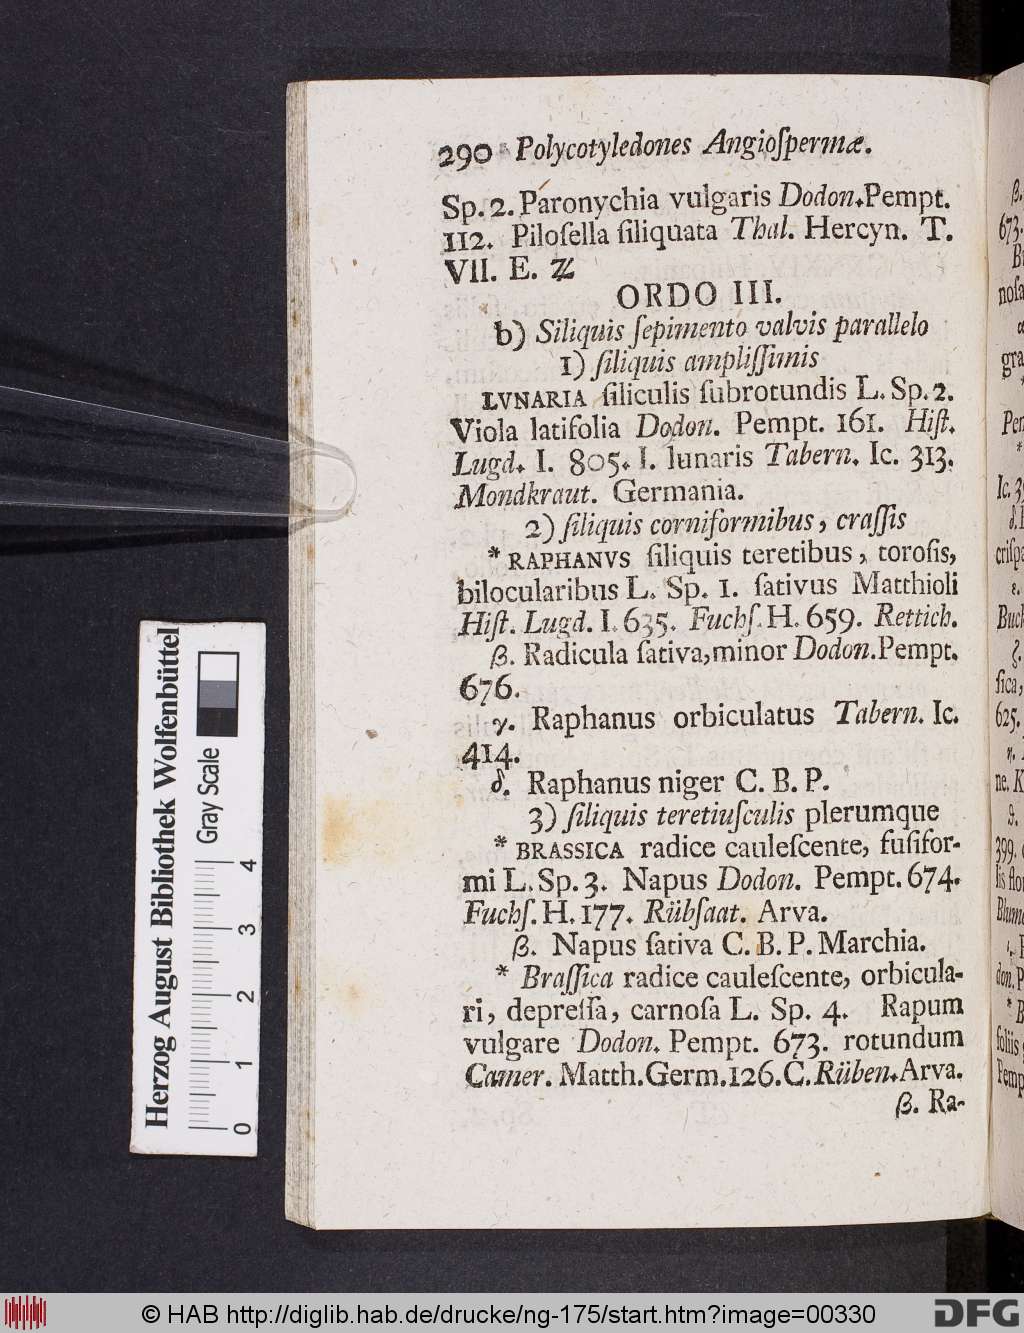 290 Polycotyledones Angioſpermæ.
Sp. 2. Paronychia vulgaris Dodon. Pempt.
112. Piloſella ſiliquata Thal. Hercyn. T.
VII. E. Z
ORDO III.
b) Siliquis ſepimento valvis parallelo
1) ſiliquis ampliſſimis
LVNARIA ſiliculis ſubrotundis L. Sp. 2.
Viola latifolia Dodon. Pempt. 161. Hiſt.
Lugd. I. 805. l. lunaris Tabern. Ic. 313.
Mondkraut. Germania.
2) ſiliquis corniformibus, craſſis
* RAPHANVS ſiliquis teretibus, toroſis,
bilocularibus L. Sp. 1. ſativus Matthioli
Hiſt. Lugd. I. 635. Fuchſ. H. 659. Rettich.
β. Radicula ſativa, minor Dodon. Pempt.
676.
γ. Raphanus orbiculatus Tabern. Ic.
414.
δ. Raphanus niger C. B. P.
3) ſiliquis teretiuſculis plerumque
* BRASSICA radice cauleſcente, fuſifor-
mi L. Sp. 3. Napus Dodon. Pempt. 674.
Fuchſ. H. 177. Rübſaat. Arva.
β. Napus ſativa C. B. P. Marchia.
* Braſſica radice cauleſcente, orbicula-
ri, depreſſa, carnoſa L. Sp. 4. Rapum
vulgare Dodon. Pempt. 673. rotundum
Camer. Matth. Germ. 126. C. Rüben. Arva.
β. Ra-
Herzog August Bibliothek Wolfenbüttel
Gray Scale
0 1 2 3 4
© HAB http://diglib.hab.de/drucke/ng-175/start.htm?image=00330
DFG